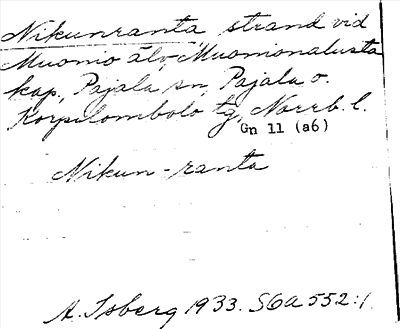 Nikunranta strand vid
Muonio älv, Muonionalusta
kap., Pajala sn, Pajala o.
Korpilombolo tg, Norrb. l.
Gn 11 (a6)
Nikun-ranta
A. Isberg 1933. SGA 552:1.